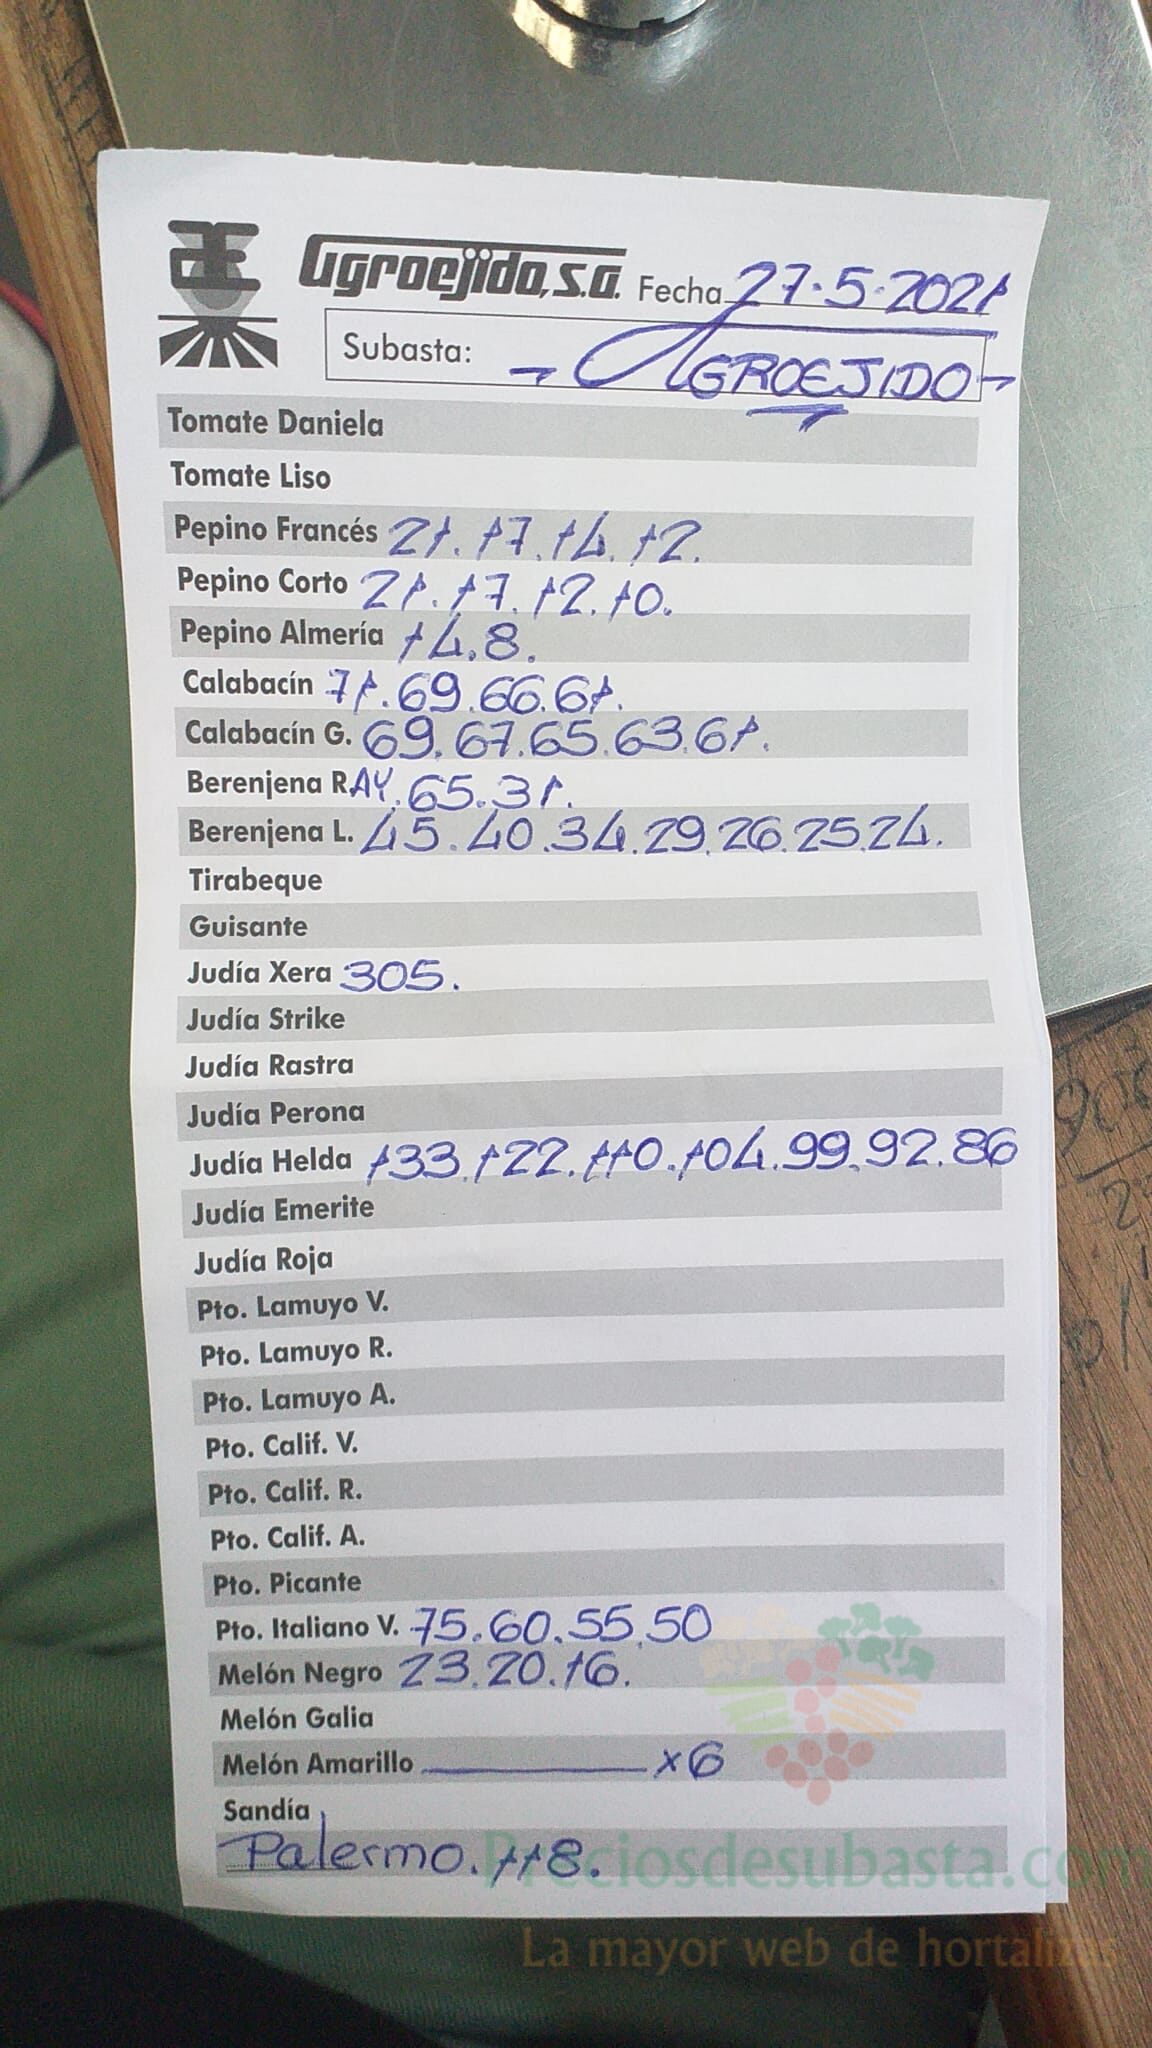 Agroejido, S.A. Fecha 27.5.2021
Subasta: AGROEJIDO
Tomate Daniela
Tomate Liso
Pepino Francés 21.17.14.12.
Pepino Corto 21.17.12.10.
Pepino Almería 14.8.
Calabacín 71.69.66.61.
Calabacín G. 69.67.65.63.61.
Berenjena RAY.65.31.
Berenjena L. 45.40.34.29.26.25.24.
Tirabeque
Guisante
Judía Xera 305.
Judía Strike
Judía Rastra
Judía Perona
Judía Helda 133.122.110.104.99.92.86
Judía Emerite
Judía Roja
Pto. Lamuyo V.
Pto. Lamuyo R.
Pto. Lamuyo A.
Pto. Calif. V.
Pto. Calif. R.
Pto. Calif. A.
Pto. Picante
Pto. Italiano V. 75.60.55.50
Melón Negro 23.20.16.
Melón Galia
Melón Amarillo x6
Sandía
Palermo. 118.
Preciosdesubasta.com
La mayor web de hortalizas